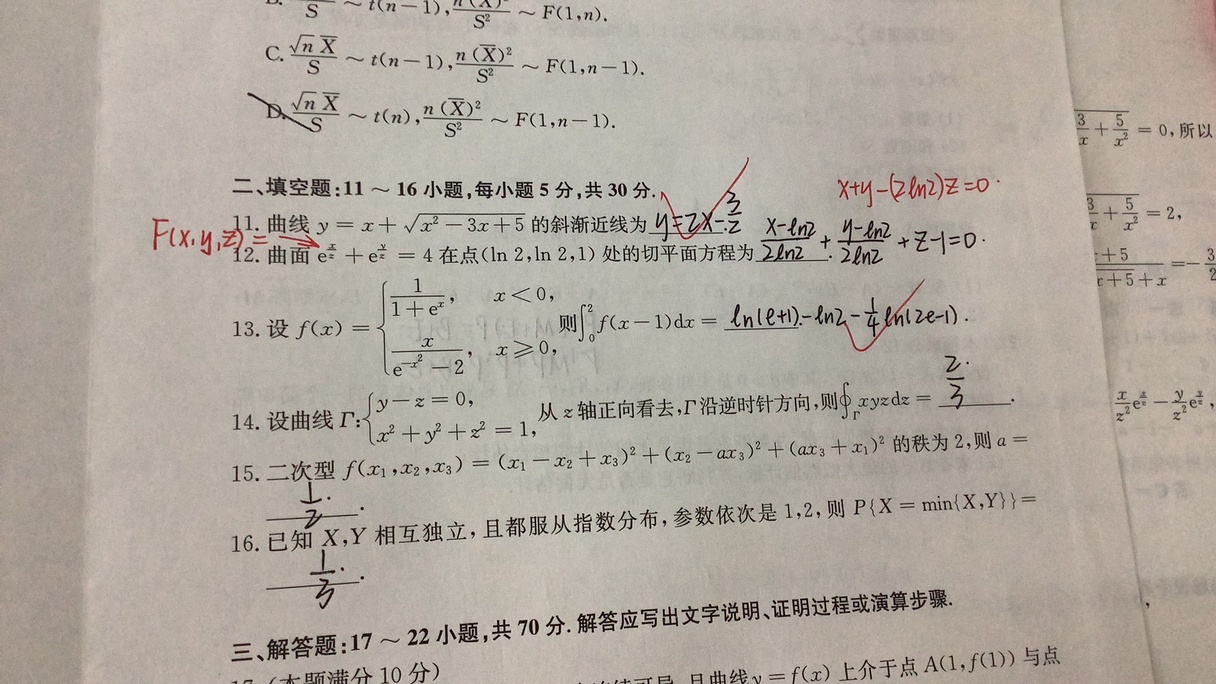 S ~ t(n-1), n(X̄)²/S² ~ F(1,n).
C. √n X̄/S ~ t(n-1), n(X̄)²/S² ~ F(1,n-1).
D. √n X̄/S ~ t(n), n(X̄)²/S² ~ F(1,n-1).
二、填空题:11 ~ 16 小题,每小题 5 分,共 30 分.
x+y-(2ln2)z=0.
11. 曲线 y = x + √(x² - 3x + 5) 的斜渐近线为 y=2x-3/2.
F(x,y,z)=
12. 曲面 e^(x/z) + e^(y/z) = 4 在点(ln 2,ln 2,1) 处的切平面方程为 (x-ln2)/(2ln2) + (y-ln2)/(2ln2) + z-1=0.
13. 设 f(x) = { 1/(1+e^x), x < 0, x/(e^(-x²) - 2), x ≥ 0, 则∫₀² f(x-1)dx = ln(e+1)-ln2-1/4 ln(2e-1).
14. 设曲线 Γ: { y - z = 0, x² + y² + z² = 1, 从 z 轴正向看去,Γ 沿逆时针方向,则∮_Γ xyzdz = 2/3.
15. 二次型 f(x₁,x₂,x₃) = (x₁ - x₂ + x₃)² + (x₂ - ax₃)² + (ax₃ + x₁)² 的秩为 2,则 a =
1/2.
16. 已知 X,Y 相互独立,且都服从指数分布,参数依次是 1,2,则 P{X = min{X,Y}} =
1/3.
三、解答题:17 ~ 22 小题,共 70 分. 解答应写出文字说明、证明过程或演算步骤.
17. (本题满分 10 分)
连续可导,且曲线 y = f(x) 上介于点 A(1,f(1)) 与点
3/x + 5/x² = 0,所以
3/x + 5/x² = 2,
+5+x = -3/2
x/z² e^(x/z) - y/z² e^(y/z),